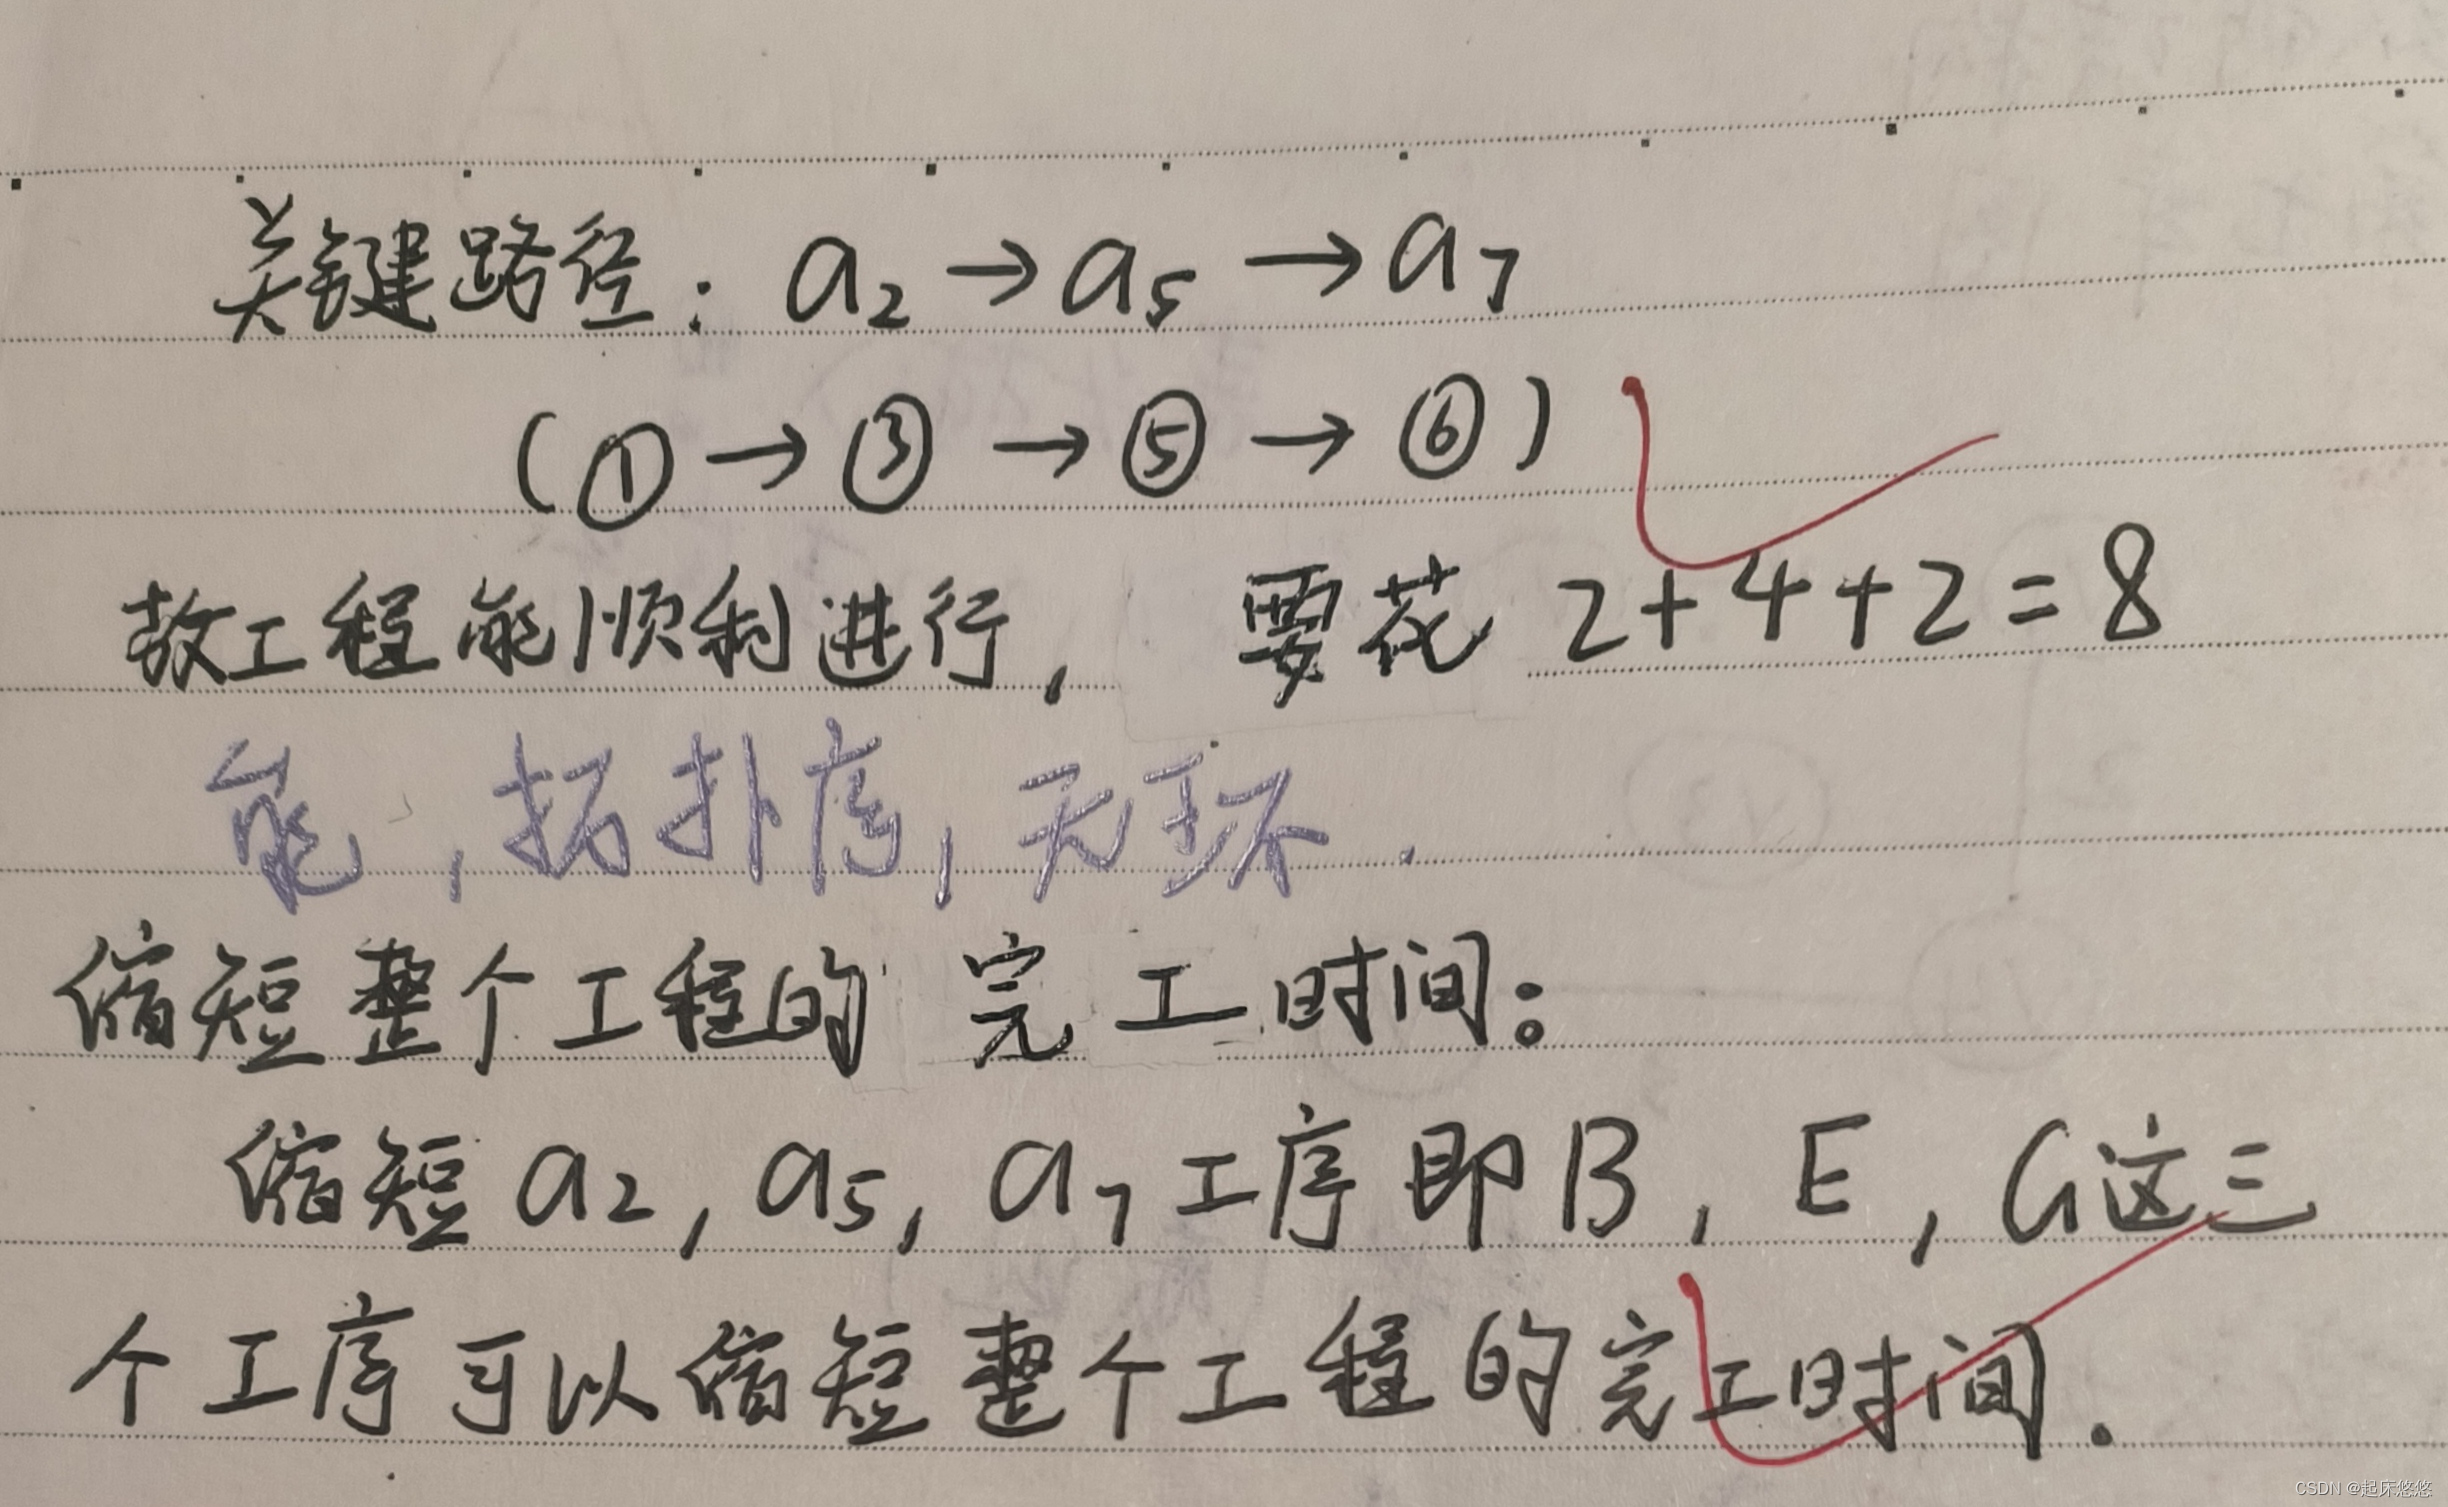 关键路径：a₂→a₅→a₇
（①→③→⑤→⑥）
故工程能顺利进行，要花 2+4+2=8
能，拓扑序，无环.
缩短整个工程的完工时间：
缩短a₂，a₅，a₇工序即B，E，G这三
个工序可以缩短整个工程的完工时间.
CSDN @起床悠悠